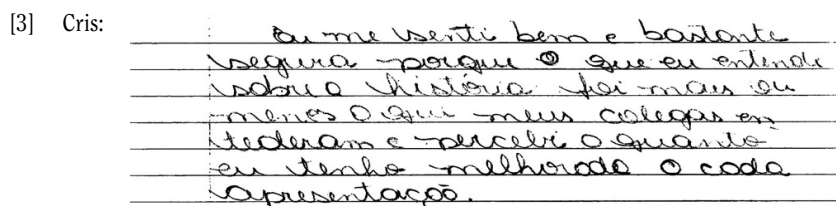 [3] Cris:
Eu me senti bem e bastante
segura porque o que eu entende
sobre a história foi mais ou
menos o qui meus colegas en
tederam e percebi o quanto
eu tenho melhorado o cada
apresentaçõo.